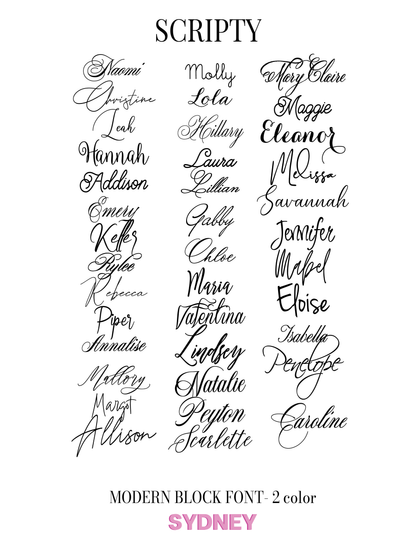 SCRIPTY
Naomi
Christine
Leah
Hannah
Addison
Emery
Keller
Rylee
Rebecca
Piper
Annalise
Mallory
Margot
Allison
Molly
Lola
Hillary
Laura
Lillian
Gabby
Chloe
Maria
Valentina
Lindsey
Natalie
Peyton
Scarlette
Mary Claire
Maggie
Eleanor
Melissa
Savannah
Jennifer
Mabel
Eloise
Isabella
Penelope
Caroline
MODERN BLOCK FONT- 2 color
SYDNEY